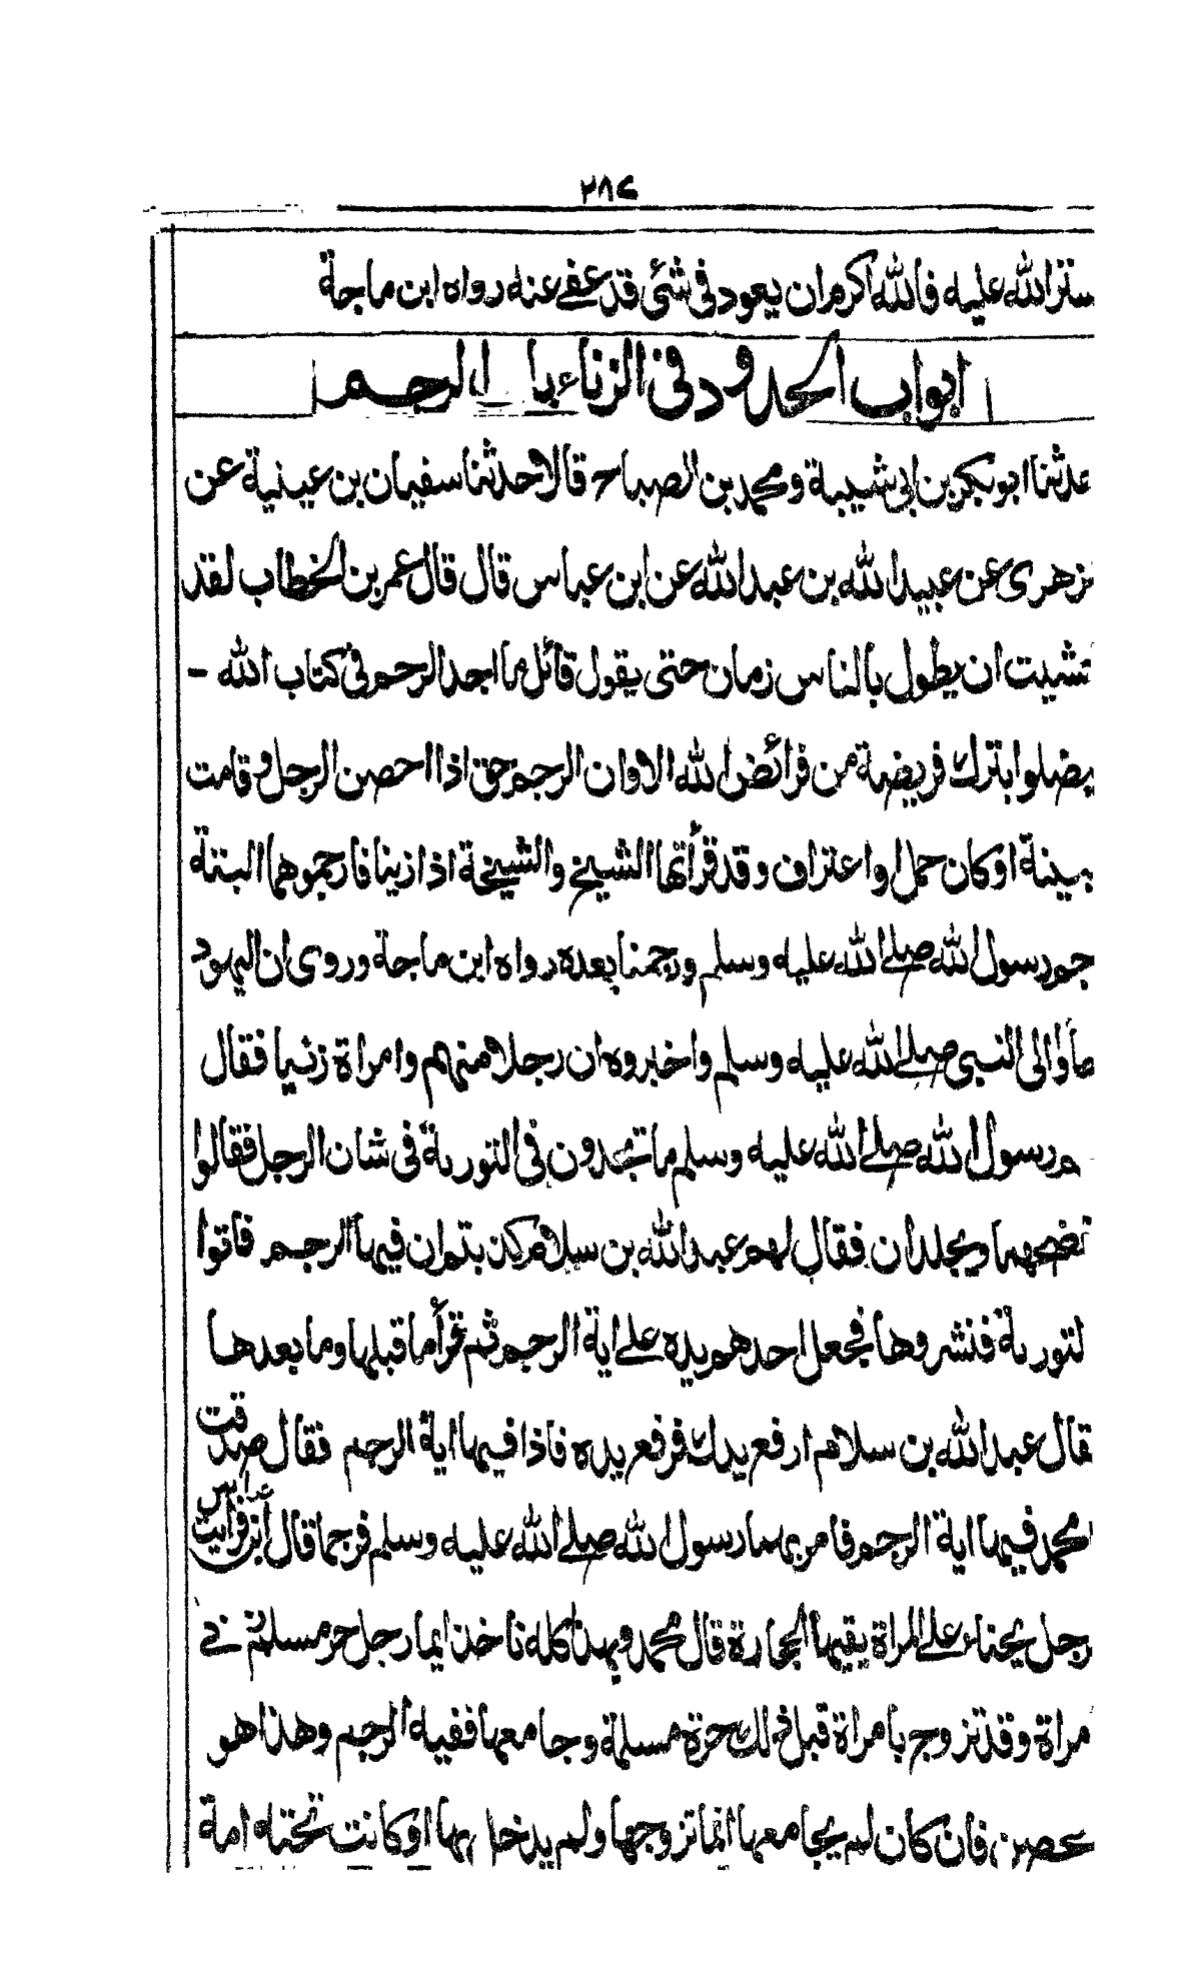 ٢٨٤
ستر الله عليه فالله اكرم ان يعود فى شئ قد عفے عنه رواه ابن ماجة
ابواب الحدود فى الزناء باب الرجم
حدثنا ابو بكر بن ابى شيبة ومحمد بن الصباح قالا حدثنا سفيان بن عينية عن
زهرى عن عبيد الله بن عبد الله عن ابن عباس قال قال عمر بن الخطاب لقد
خشيت ان يطول بالناس زمان حتى يقول قائل ما اجد الرجم فى كتاب الله -
يضلوا بترك فريضة من فرائض الله الا وان الرجم حق اذا احصن الرجل وقامت
بينة او كان حمل او اعتراف وقد قرأتها الشيخ والشيخة اذا زنيا فارجموهما البتة
جم رسول الله صلے الله عليه وسلم ورجمنا بعده رواه ابن ماجة وروى ان اليهود
جاؤا الى النبى صلے الله عليه وسلم واخبروه ان رجلا منهم وامراة زنيا فقال
م رسول الله صلے الله عليه وسلم ما تجدون فى التورىة فى شان الرجل فقالوا
نفضحهما ويجلدان فقال لهم عبد الله بن سلام كذبتم ان فيها الرجم فاتوا
لتورىة فنشروها فجعل احدهم يده على اية الرجم ثم قرأ ما قبلها وما بعدها
قال عبد الله بن سلام ارفع يدك فرفع يده فاذا فيها اية الرجم فقال صدقت
محمد فيها اية الرجم فامر بهما رسول الله صلے الله عليه وسلم فرجما قال ابن عباس فرايت
رجل يحناء على المراة يقيها الحجارة قال محمد وبهذا كله ناخذ ايما رجل حر مسلم زنى
مراة وقد تزوج بامراة قبل ذلك حرة مسلمة وجامعها ففيه الرجم وهذا هو
محصن فان كان لم يجامعها انما تزوجها ولم يدخل بها او كانت تحته امة